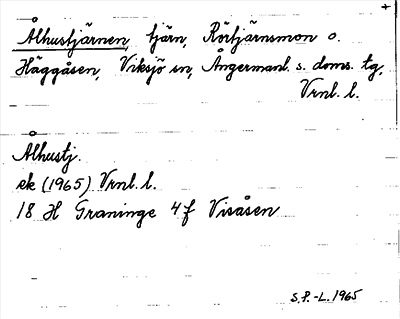 Ålhustjärnen, tjärn, Rörtjärnsmon o.
Häggåsen, Viksjö sn, Ångermanl. s. doms. tg,
Vrnl. l.
Ålhustj.
ek (1965) Vrnl. l.
18 H Graninge 4 f Visåsen
S.P.-L. 1965